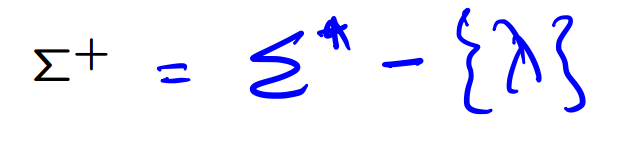 Σ⁺ = Σ* - {λ}